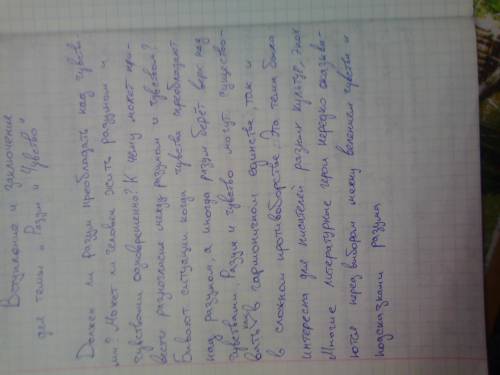 Вступление и заключение
для темы "Разум и Чувство"
Должен ли разум преобладать над чувств
ми? Может ли человек жить разумом и
чувствами одновременно? К чему может при-
вести разногласие между разумом и чувством?
Бывают ситуации когда чувства преобладают
над разумом, а иногда разум берёт верх над
чувствами. Разум и чувство могут существо-
вать как в гармоничном единстве, так и
в сложном противоборстве. Эта тема была
интересна для писателей разных культур, эпох
Многие литературные герои нередко оказыва-
ются перед выбором между велением чувства и
подсказками разума